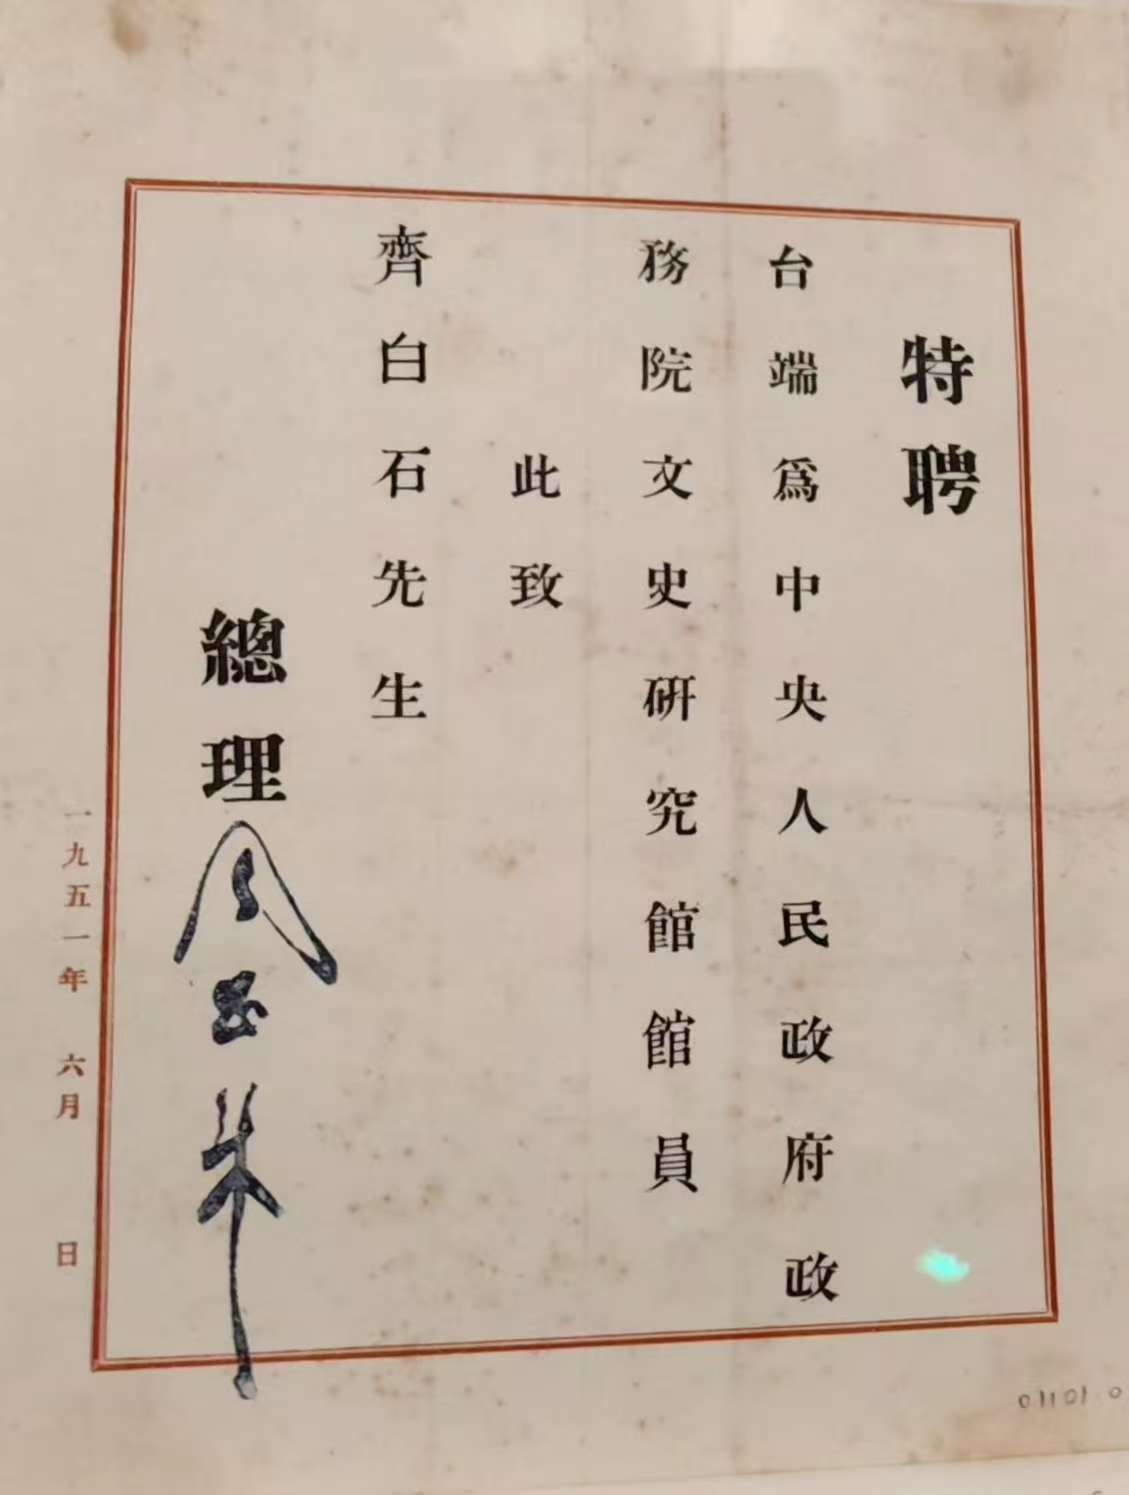 特聘
台端爲中央人民政府政
務院文史研究館館員
此致
齊白石先生
總理周恩来
一九五一年 六月 日
01101.0